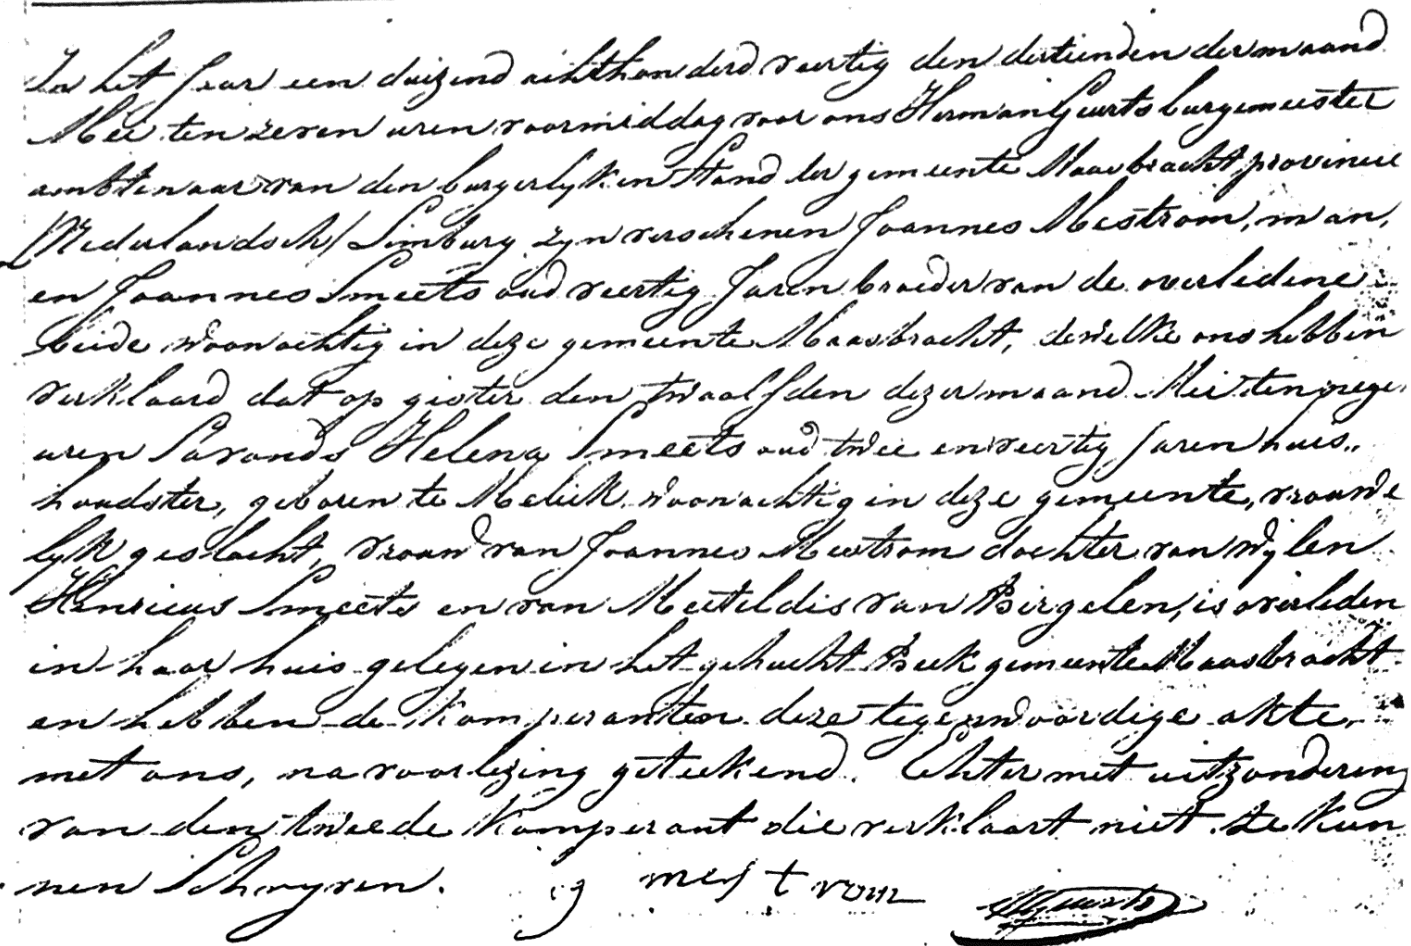 In het Jaar een duizend achthonderd veertig den dertienden der maand
Mei ten zeven uren voormiddag voor ons Herman Geurts burgemeester
ambtenaar van den burgerlyken Stand der gemeente Maasbracht, provincie
(Nederlandsch) Limburg zyn verschenen Joannes Mestrom, man,
en Joannes Smeets oud veertig Jaren broeder van de overledene
beide woonachtig in deze gemeente Maasbracht, dewelke ons hebben
verklaard dat op gister den twaalfden dezer maand Mei ten nege
uren Savonds Helena Smeets oud twee en veertig Jaren huis„
houdster, geboren te Melick woonachtig in deze gemeente, vrouwe
lyk geslacht, vrouw van Joannes Mestrom dochter van wylen
Henricus Smeets en van Meteldis van Birgelen, is overleden
in haar huis gelegen in het gehucht Beek gemeente Maasbracht
en hebben de Komperanten deze tegenwoordige akte,
met ons, na voorlezing geteekend. Echter met uitzondering
van den tweede Komperant die verklaart niet te kun
nen Schryven. J mesTrom HGeurts